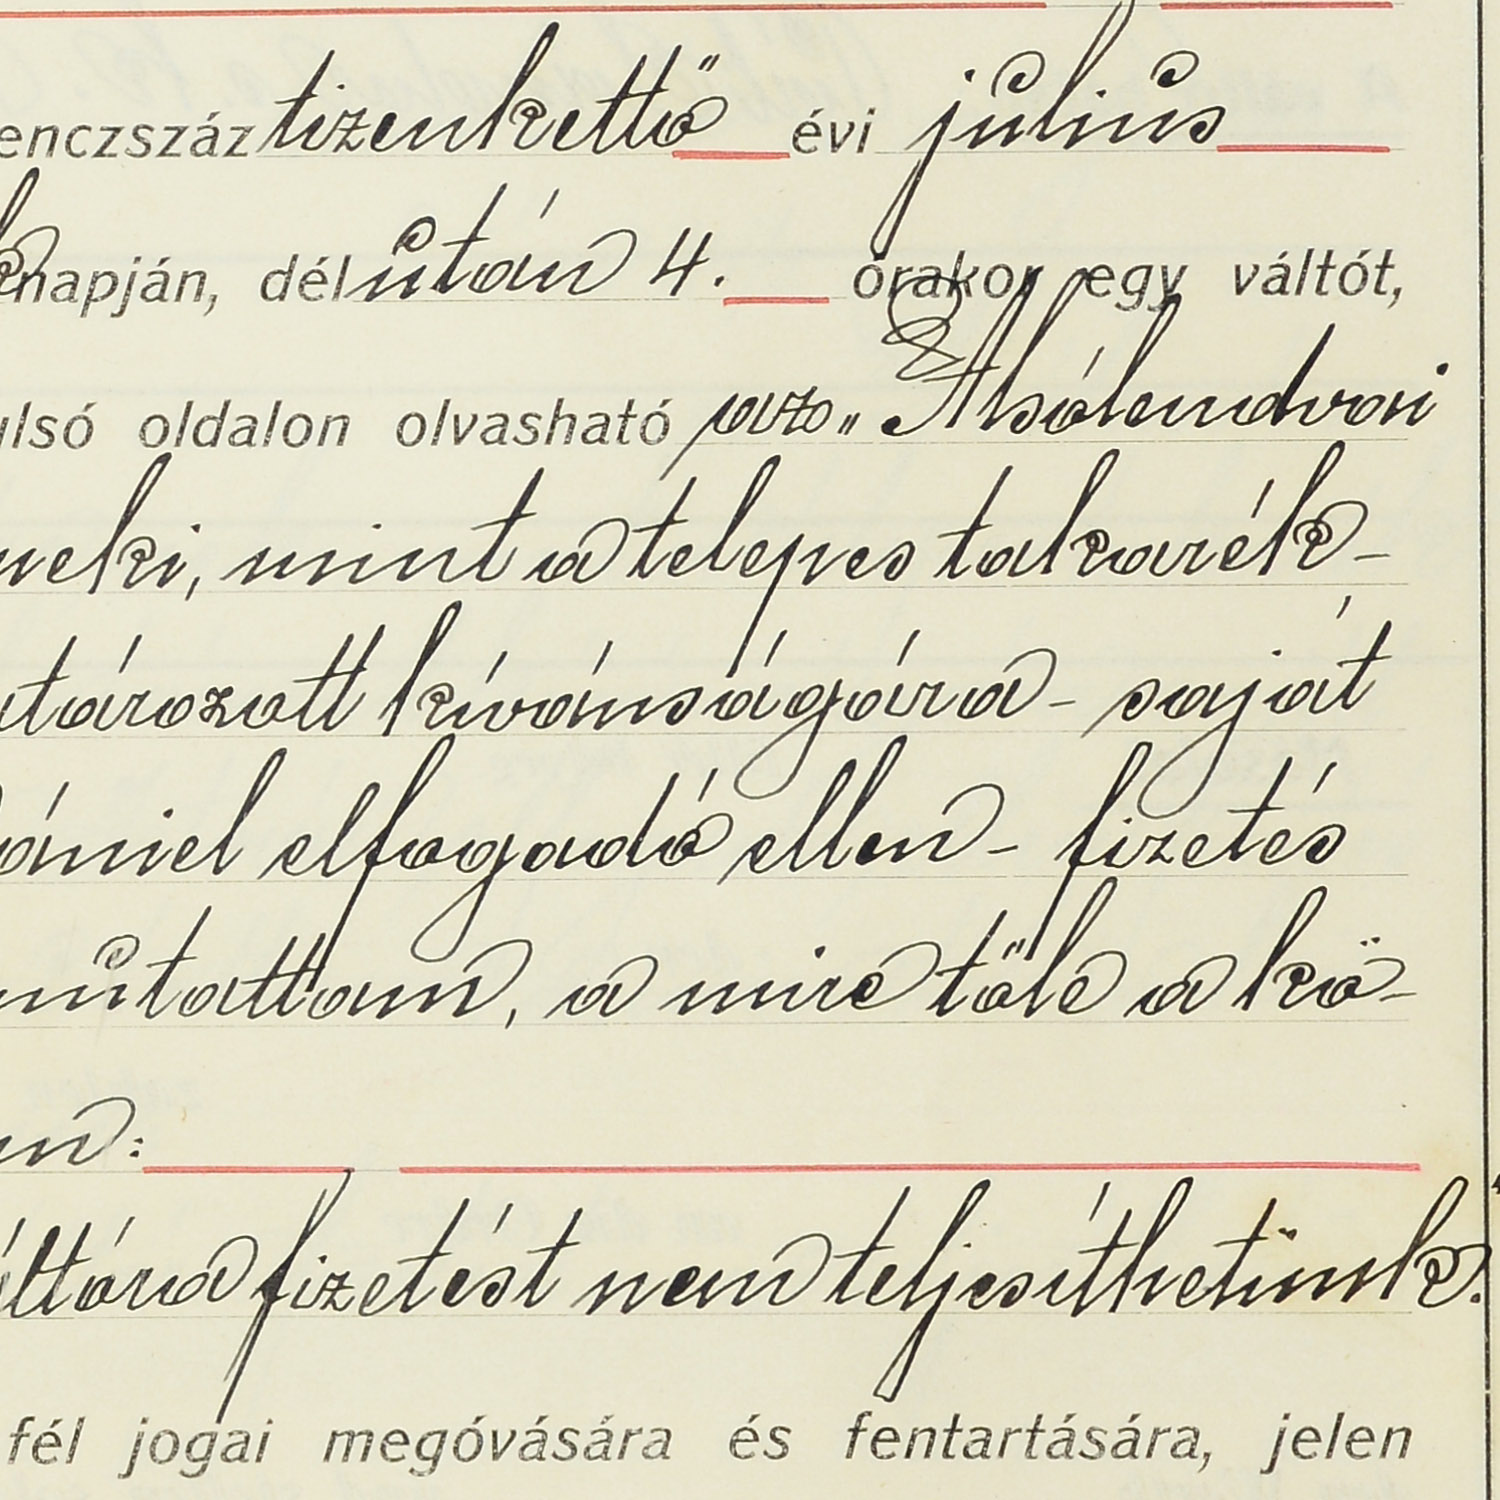 enczszáz tizenkettő évi július
napján, délután 4. órakor egy váltót,
ulsó oldalon olvasható az „Alsólendvai
neki, mint a telepes takarék-
tározott kívánságára - saját
ániel elfogadó ellen - fizetés
mutattam, a mire tőle a kö-
an:
áltóra fizetést nem teljesíthetünk."
fél jogai megóvására és fentartására, jelen